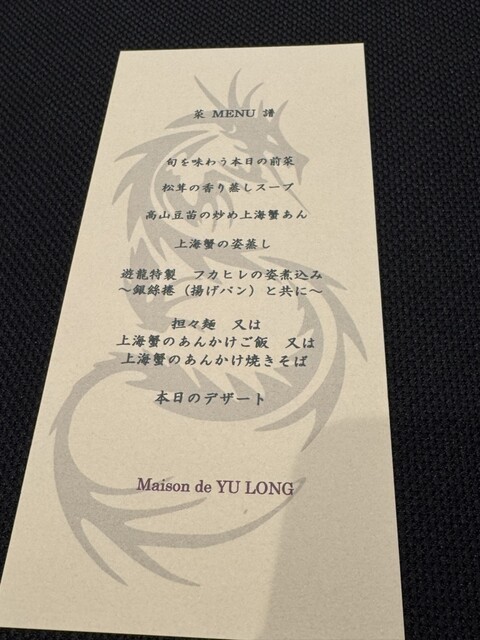 菜 MENU 譜
旬を味わう本日の前菜
松茸の香り蒸しスープ
高山豆苗の炒め上海蟹あん
上海蟹の姿蒸し
遊龍特製　フカヒレの姿煮込み
～銀絲捲（揚げパン）と共に～
担々麺　又は
上海蟹のあんかけご飯　又は
上海蟹のあんかけ焼きそば
本日のデザート
Maison de YU LONG